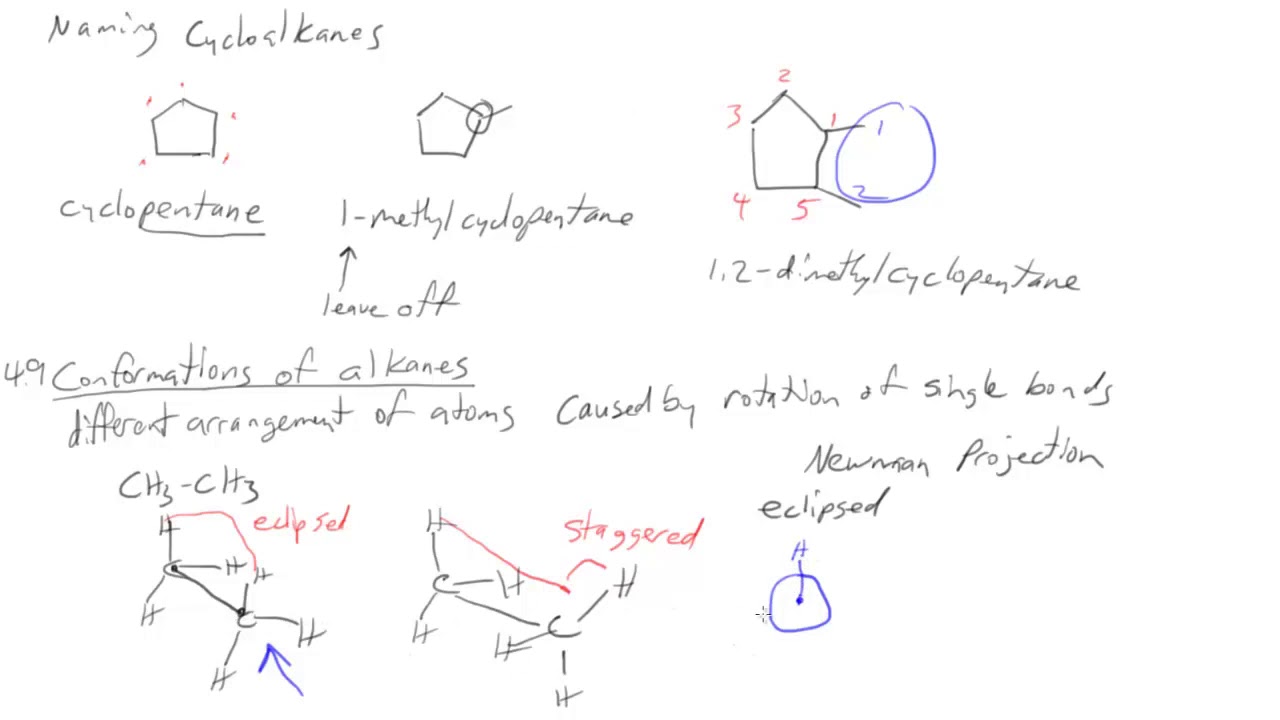 Naming Cycloalkanes
2
3 1 1
4 5 2
cyclopentane 1-methylcyclopentane
1,2-dimethylcyclopentane
leave off
4.9 Conformations of alkanes
different arrangement of atoms caused by rotation of single bonds
Newman Projection
CH3-CH3 eclipsed
H eclipsed H staggered
H H H
C H H C H
H C H H H C
H H H